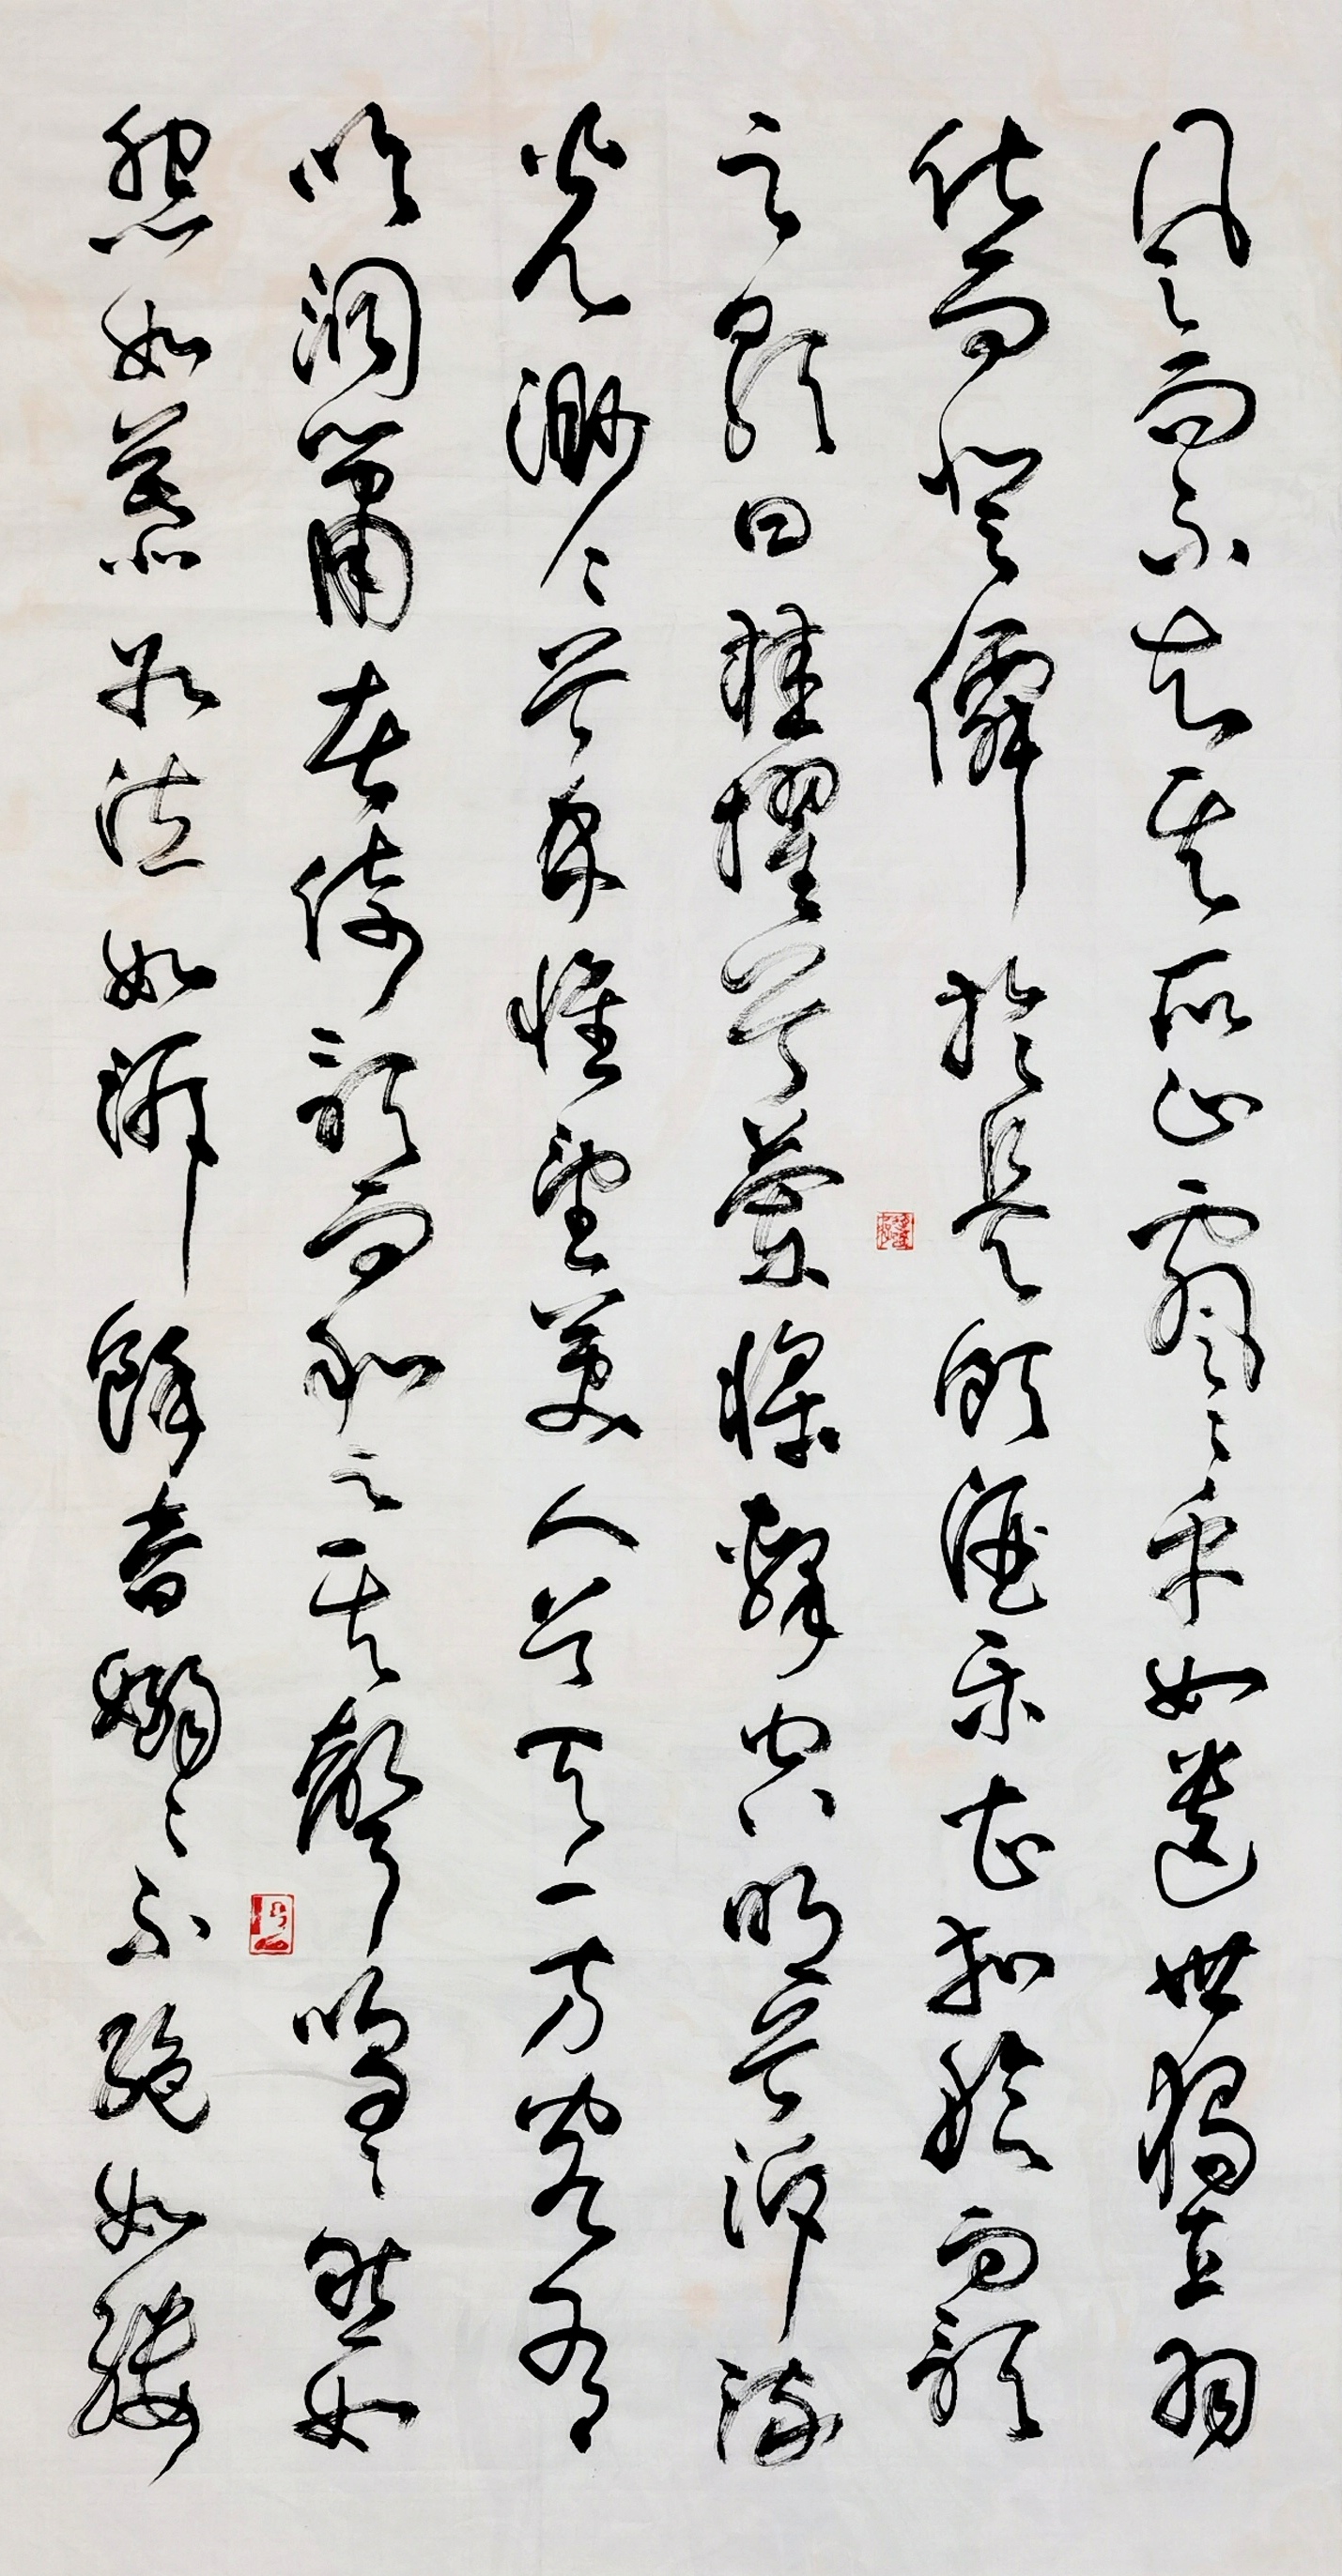 風而不知其所止飄々乎如遺世獨立羽
化而登僊於是飲酒樂甚扣舷而歌
之歌曰桂櫂兮蘭槳擊空明兮泝流
光渺々兮余懷望美人兮天一方客有
吹洞簫者倚歌而和之其聲嗚々然如
怨如慕如泣如訴餘音嫋々不絕如縷